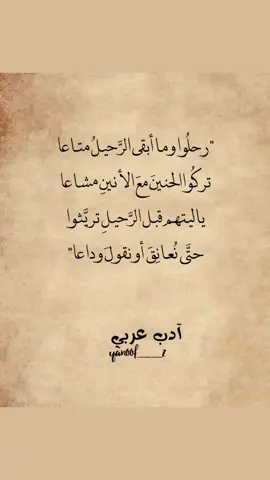 "رحلُوا وما أبقى الرَّحيلُ متاعا
تركُوا الحنينَ معَ الأنينِ مشاعا
يا ليتهم قبل الرَّحيلِ تريَّثوا
حتَّى نُعانِقَ أو نقولَ وداعا"
آدب عربي
yanoof____z